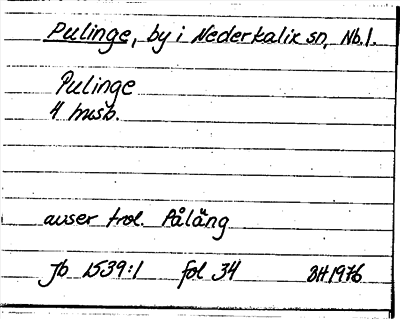 Pulinge, by i Nederkalix sn, Nb.l.
Pulinge
4 husb.
avser trol. Påläng
Jb 1539:1 fol 34 BH 1976